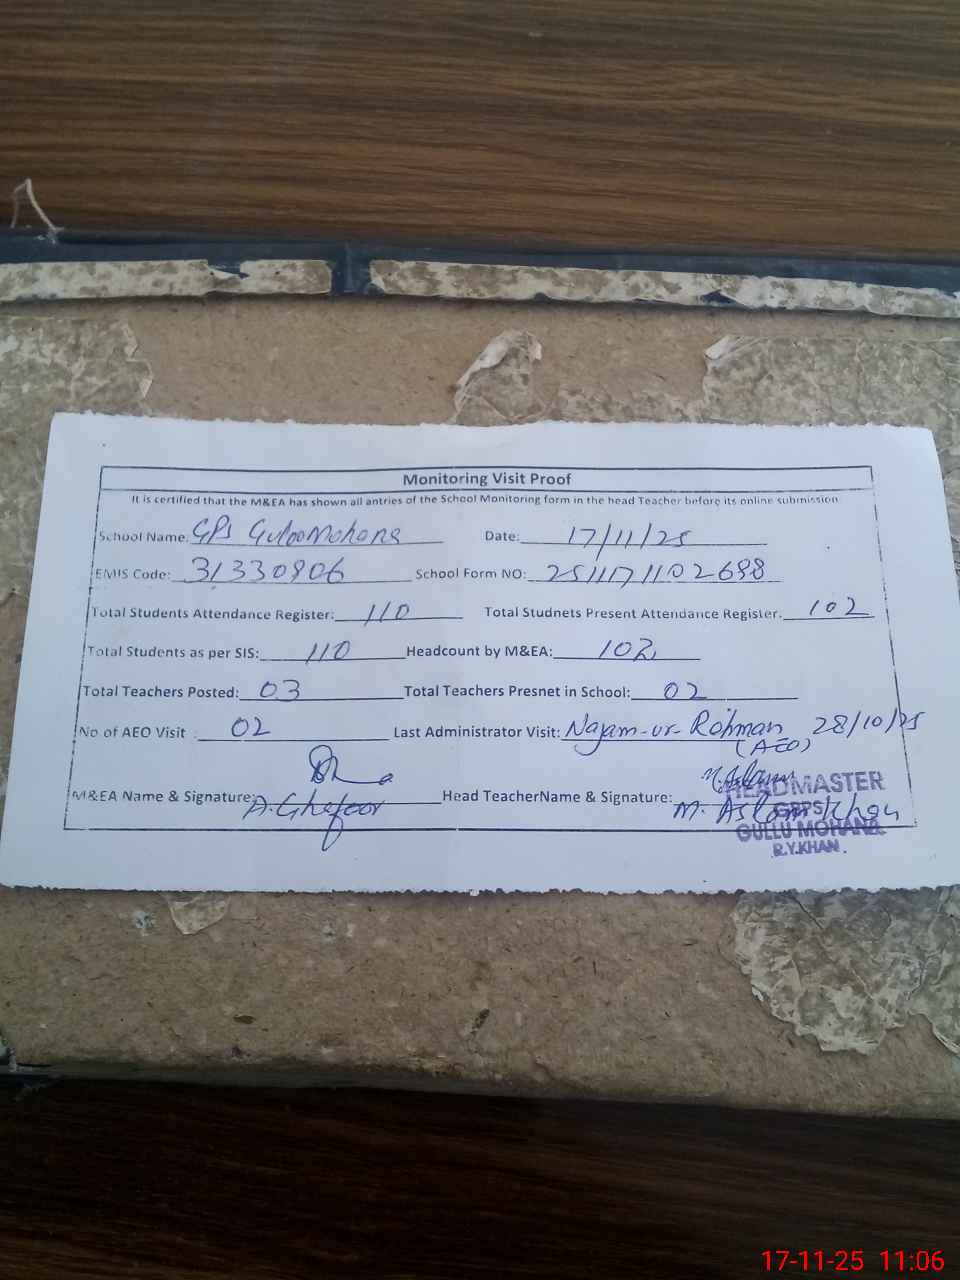 Monitoring Visit Proof
It is certified that the M&EA has shown all antries of the School Monitoring form in the head Teacher before its online submission
School Name: GPS GullooMohana Date: 17/11/25
EMIS Code: 31330806 School Form NO: 2511171102688
Total Students Attendance Register: 110 Total Studnets Present Attendance Register. 102
Total Students as per SIS: 110 Headcount by M&EA: 102
Total Teachers Posted: 03 Total Teachers Presnet in School: 02
No of AEO Visit : 02 Last Administrator Visit: Najam-ur-Rehman 28/10/25
(AEO)
M&EA Name & Signature: A.Ghafoor Head TeacherName & Signature: M. Aslam Khan
M. Aslam
HEADMASTER
GBPS
GULLU MOHANA
R.Y.KHAN.
17-11-25 11:06